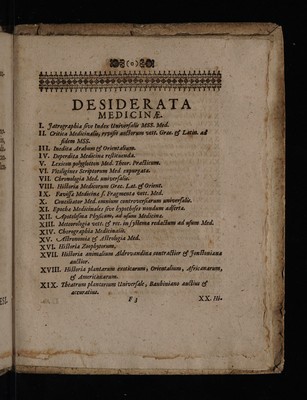 (o)
DESIDERATA
MEDICINÆ.
I. Jatrographia sive Index Universalis MSS. Med.
II. Critica Medicinalis, revisis auctorum vett. Græc. & Latin. ad
fidem MSS.
III. Inedita Arabum & Orientalium.
IV. Deperdita Medicina restituenda.
V. Lexicon polyglotton Med. Theor. Practicum.
VI. Plagium Scriptorum Med. expurgata.
VII. Chronologia Med. universalis.
VIII. Historia Medicorum Græc. Lat. & Orient.
IX. Parcissa Medicina s. Fragmenta vett. Med.
X. Conciliator Med. omnium controversiarum universalis.
XI. Epocha Medicinales sive hypotheses nondum asserta.
XII. Apotelesma Physicum, ad usum Medicinæ.
XIII. Meteorologia vett. & rec. in systema redactum ad usum Med.
XIV. Chorographia Medicinalis.
XV. Astronomia & Astrologia Med.
XVI. Historia Zoophytorum.
XVII. Historia animalium Aldrovandina contractior & Jonstoniana
auctior.
XVIII. Historia plantarum exoticarum, Orientalium, Africanarum,
& Americanarum.
XIX. Theatrum plantarum Universale, Bauhiniano auctius &
accuratius.
F 3
XX. Hi-